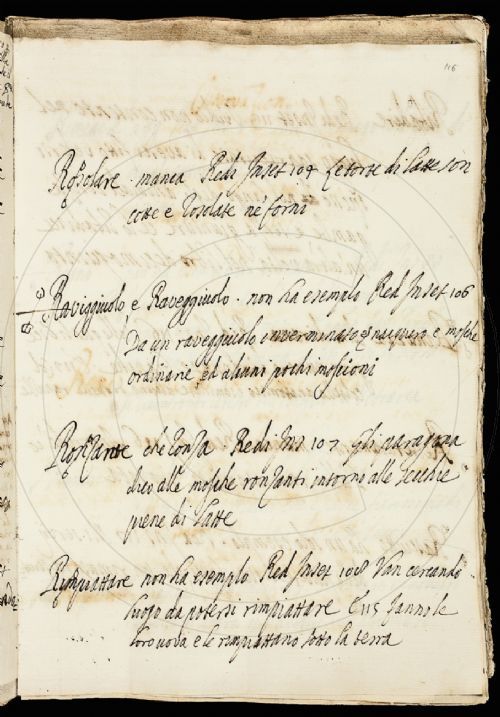 116
Rosolare. manca Redi Inset 104 le torte di latte son
cotte e rosolate ne' forni
Raviggiuolo e Raveggiuolo. non ha esempio Red Inset 106
Da un raveggiuolo inverminato nacquero e mosche
ordinarie, ed alcuni pochi moscioni
Ronzante che ronza Redi Ins 107 gli paragona
dico alle mosche ronzanti intorno alle secchie
piene di latte
Rimpiattare non ha esempio Red Inset 108 Van cercando
luogo da potersi rimpiattare E 115 fanno le
loro uova e le rimpiattano sotto la terra